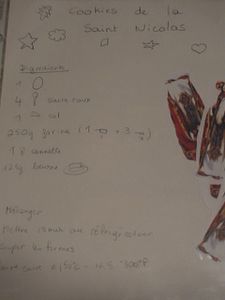 Cookies de la
Saint Nicolas
Ingrédients
1
4 sucre roux
1 sel
250g farine (1 + 3)
1 cannelle
125g beurre
Mélanger
Mettre 15 min au réfrigérateur
formes